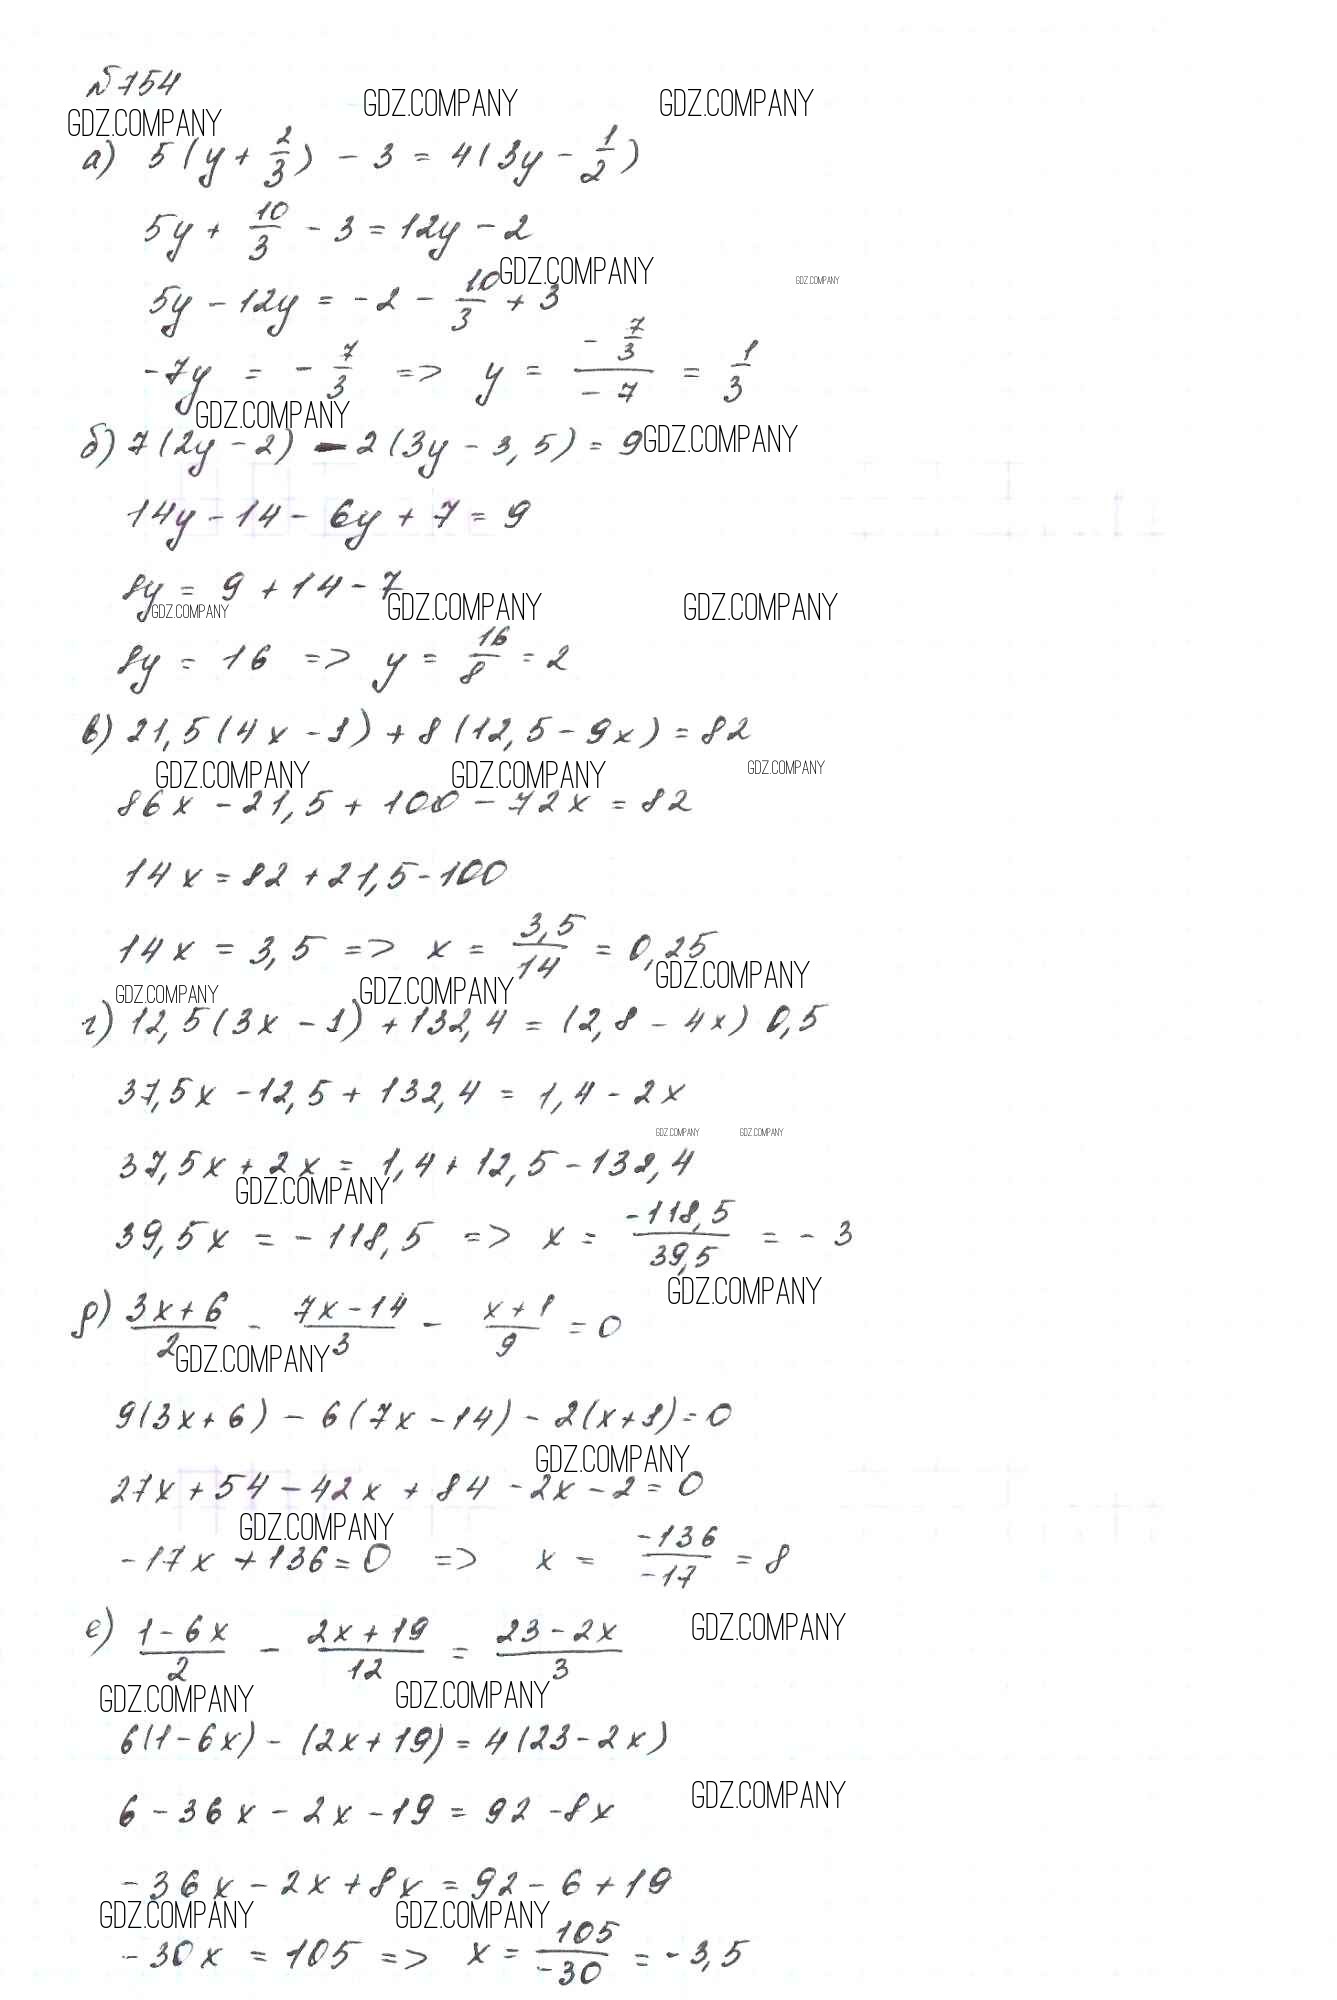 №754
GDZ.COMPANY GDZ.COMPANY GDZ.COMPANY
а) 5(y + 2/3) - 3 = 4(3y - 1/2)
5y + 10/3 - 3 = 12y - 2
GDZ.COMPANY GDZ.COMPANY
5y - 12y = -2 - 10/3 + 3
-7y = - 7/3 => y = (- 7/3)/(- 7) = 1/3
GDZ.COMPANY GDZ.COMPANY
б) 7(2y - 2) - 2(3y - 3,5) = 9
14y - 14 - 6y + 7 = 9
8y = 9 + 14 - 7
GDZ.COMPANY GDZ.COMPANY GDZ.COMPANY
8y = 16 => y = 16/8 = 2
в) 21,5(4x - 1) + 8(12,5 - 9x) = 82
GDZ.COMPANY GDZ.COMPANY GDZ.COMPANY
86x - 21,5 + 100 - 72x = 82
14x = 82 + 21,5 - 100
14x = 3,5 => x = 3,5/14 = 0,25
GDZ.COMPANY GDZ.COMPANY GDZ.COMPANY
г) 12,5(3x - 1) + 132,4 = (2,8 - 4x) 0,5
37,5x - 12,5 + 132,4 = 1,4 - 2x
GDZ.COMPANY GDZ.COMPANY
37,5x + 2x = 1,4 + 12,5 - 132,4
GDZ.COMPANY
39,5x = - 118,5 => x = -118,5/39,5 = - 3
GDZ.COMPANY
д) (3x + 6)/2 - (7x - 14)/3 - (x + 1)/9 = 0
GDZ.COMPANY
9(3x + 6) - 6(7x - 14) - 2(x + 1) = 0
GDZ.COMPANY
27x + 54 - 42x + 84 - 2x - 2 = 0
GDZ.COMPANY
-17x + 136 = 0 => x = -136/-17 = 8
е) (1 - 6x)/2 - (2x + 19)/12 = (23 - 2x)/3
GDZ.COMPANY
GDZ.COMPANY GDZ.COMPANY
6(1 - 6x) - (2x + 19) = 4(23 - 2x)
GDZ.COMPANY
6 - 36x - 2x - 19 = 92 - 8x
-36x - 2x + 8x = 92 - 6 + 19
GDZ.COMPANY GDZ.COMPANY
-30x = 105 => x = 105/-30 = -3,5